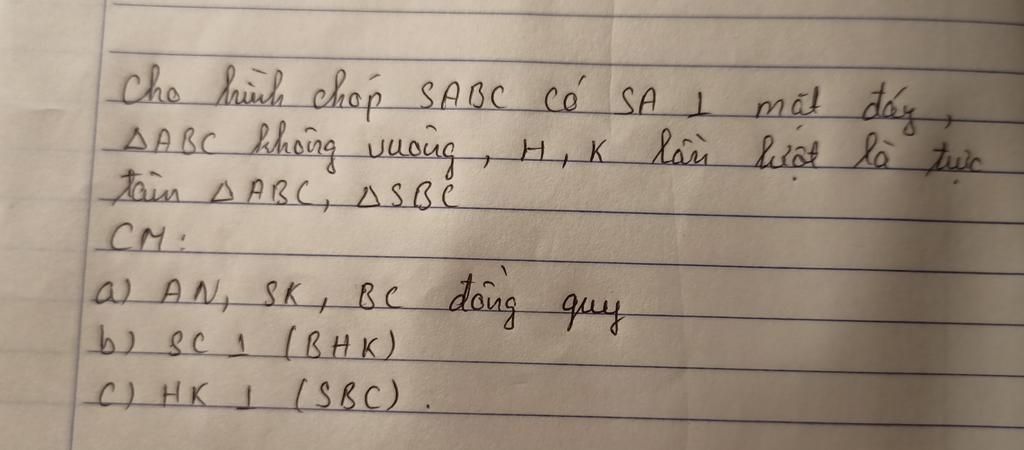 Cho hình chóp SABC có SA ⊥ mặt đáy,
△ABC không vuông, H, K lần lượt là trực
tâm △ABC, △SBC
CM:
a) AN, SK, BC đồng quy
b) SC ⊥ (BHK)
c) HK ⊥ (SBC).